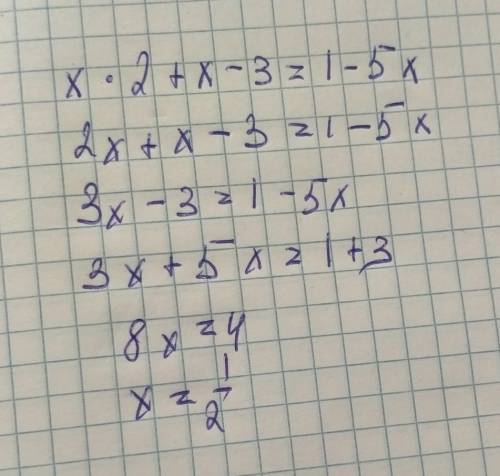 x · 2 + x - 3 = 1 - 5x
2x + x - 3 = 1 - 5x
3x - 3 = 1 - 5x
3x + 5x = 1 + 3
8x = 4
x = 1/2